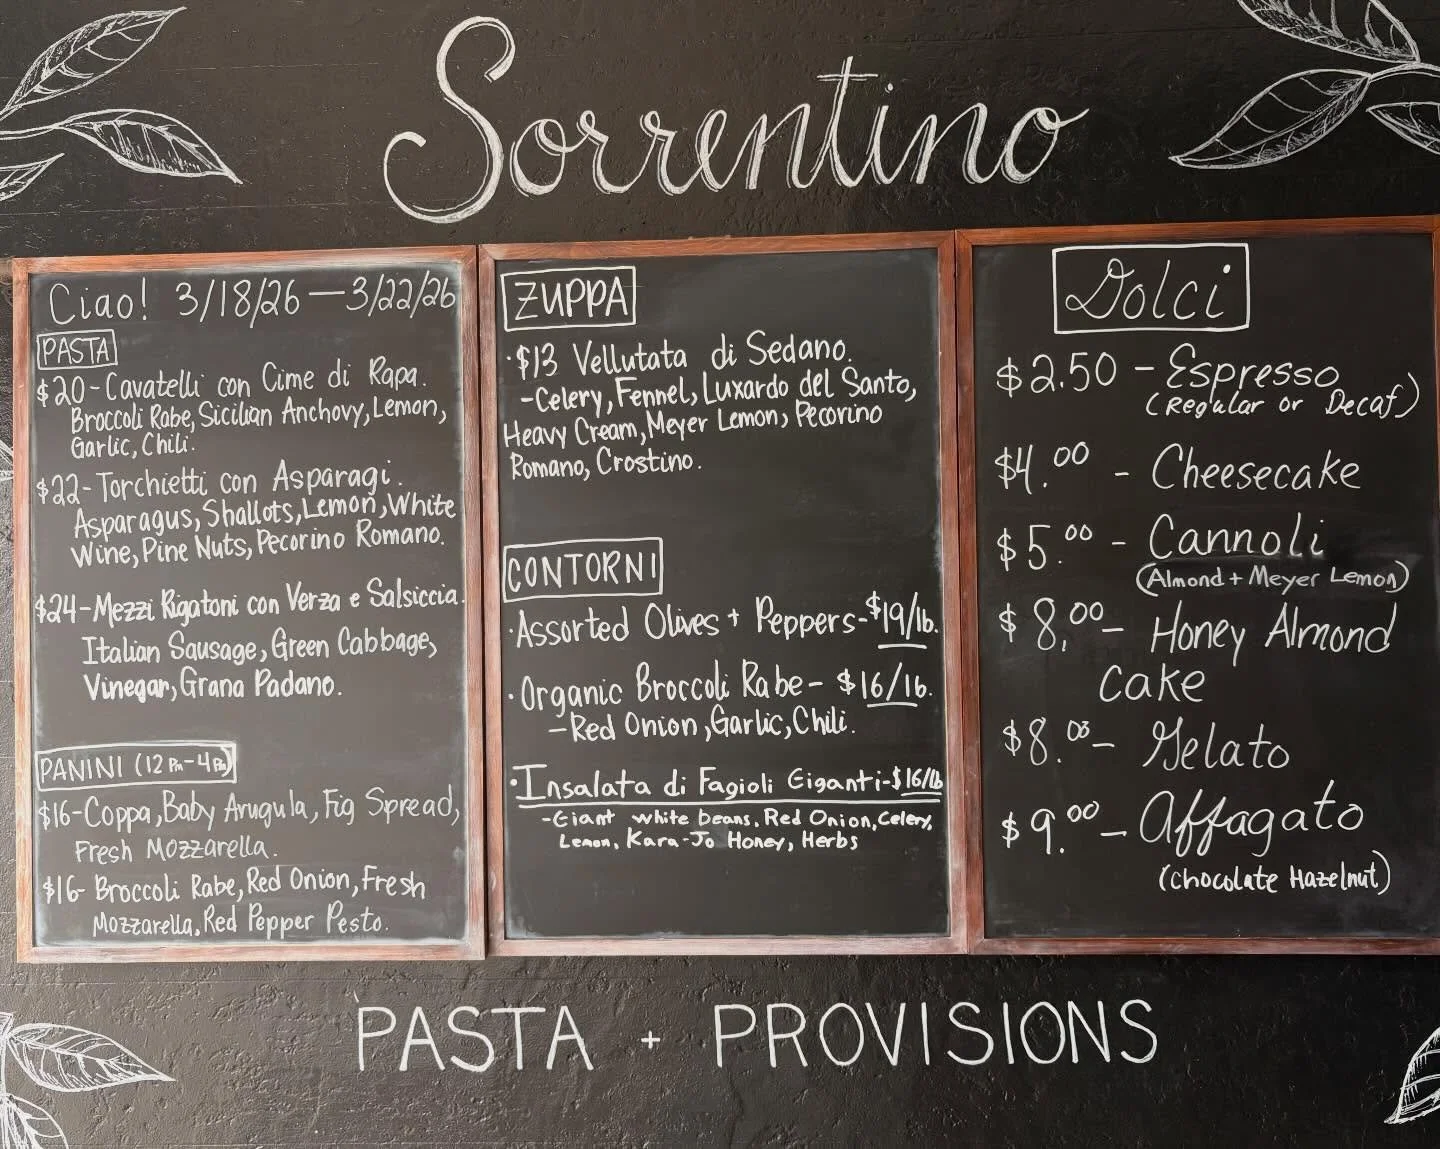 Sorrentino
Ciao! 3/18/26 — 3/22/26
PASTA
$20 - Cavatelli con Cime di Rapa.
Broccoli Rabe, Sicilian Anchovy, Lemon,
Garlic, Chili.
$22 - Torchietti con Asparagi.
Asparagus, Shallots, Lemon, White
Wine, Pine Nuts, Pecorino Romano.
$24 - Mezzi Rigatoni con Verza e Salsiccia.
Italian Sausage, Green Cabbage,
Vinegar, Grana Padano.
PANINI (12 Pm - 4 Pm)
$16 - Coppa, Baby Arugula, Fig Spread,
Fresh Mozzarella.
$16 - Broccoli Rabe, Red Onion, Fresh
Mozzarella, Red Pepper Pesto.
ZUPPA
· $13 Vellutata di Sedano.
- Celery, Fennel, Luxardo del Santo,
Heavy Cream, Meyer Lemon, Pecorino
Romano, Crostino.
CONTORNI
· Assorted Olives + Peppers - $19/lb.
· Organic Broccoli Rabe - $16/lb.
- Red Onion, Garlic, Chili.
· Insalata di Fagioli Giganti - $16/lb
- Giant white beans, Red Onion, Celery,
Lemon, Kara-Jo Honey, Herbs
Dolci
$2.50 - Espresso
(Regular or Decaf)
$4.00 - Cheesecake
$5.00 - Cannoli
(Almond + Meyer Lemon)
$8.00 - Honey Almond
Cake
$8.00 - Gelato
$9.00 - Affagato
(Chocolate Hazelnut)
PASTA + PROVISIONS